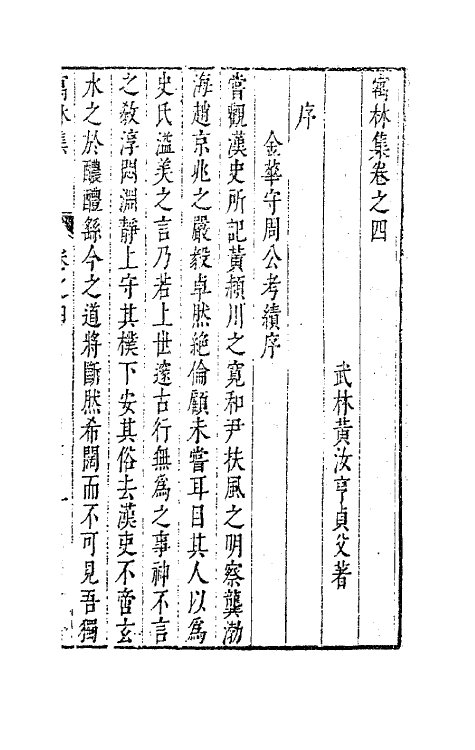 寓林集卷之四
武林黃汝亨貞父著
序
金華守周公考績序
嘗觀漢史所記黃潁川之寬和尹扶風之明察龔渤
海趙京兆之嚴毅卓然絕倫顧未嘗耳目其人以為
史氏溢美之言乃若上世邃古行無為之事神不言
之教淳悶淵靜上守其樸下安其俗去漢吏不啻玄
水之於醲醴繇今之道將斷然希闊而不可見吾獨
寓林集
卷之四